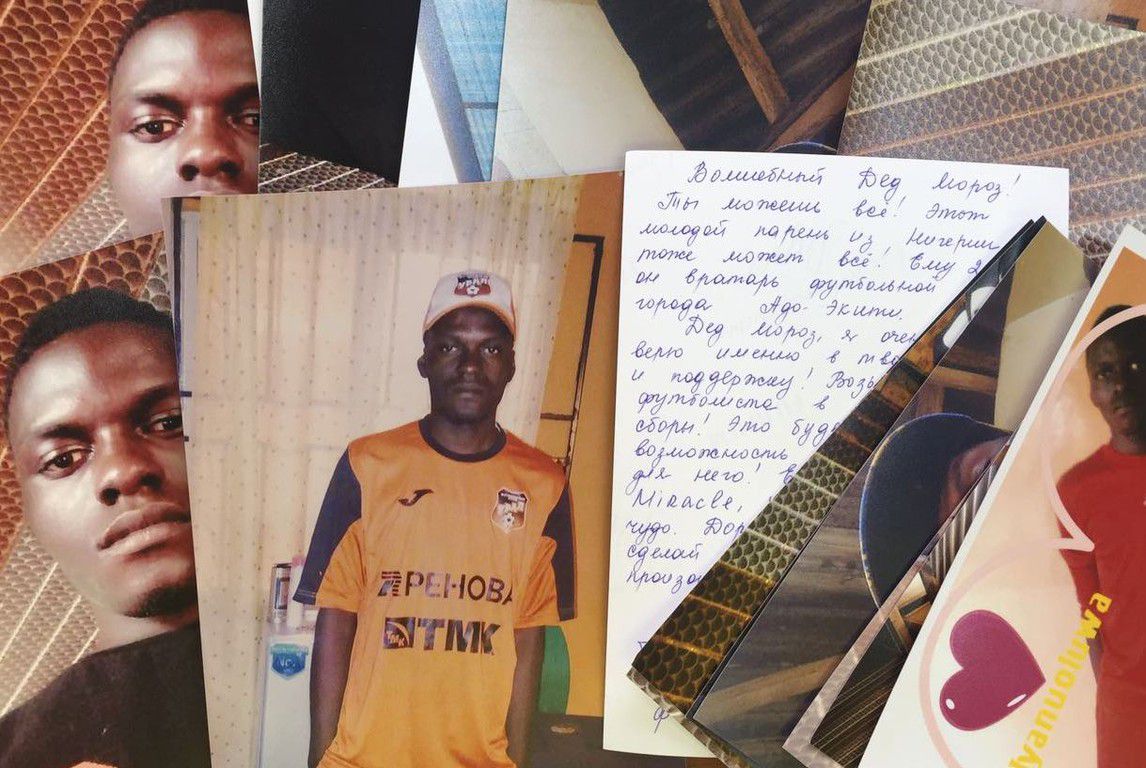 Волшебный Дед Мороз!
Ты можешь всё! Этот
молодой парень из Нигерии
тоже может всё! Ему 2
он вратарь футбольной
города Адо-Экити.
Дед Мороз, я
верю именно в
и поддержку!
футболиста в
сборы! Это
возможность
для него!
Miracle,
чудо.
сделай
УРАЛ
РЕНОВА
ТМК
ТМК
yanuoluwa